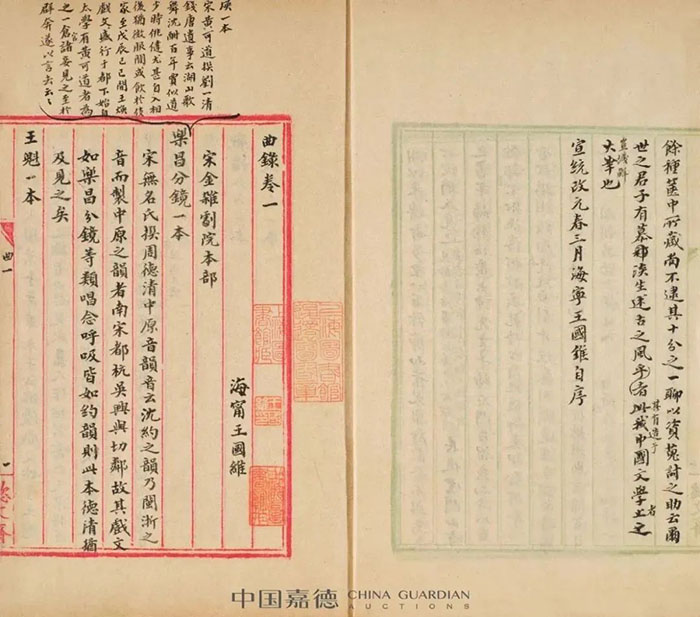 餘種篋中所藏尚不逮其十分之一聊以資蒐討之助云爾
世之君子有慕那淡生述古之風乎者此我中國文學上之
大峯也
宣統改元春三月海寧王國維自序
曲錄卷一
宋金雜劇院本部
海甯王國維
樂昌分鏡一本
宋無名氏撰周德清中原音韻音云沈約之韻乃閩浙之
音而製中原之韻者南宋都杭吳興與切鄰故其戲文
如樂昌分鏡等類唱念呼吸皆如約韻則此本德清猶
及見之矣
王魁一本
一本
宋黃可道撰劉一清
錢唐遺事云湖山歌
舞沈酣百年賈似道
少時佻健尤甚自入相
後猶微服間或飲於伎
家至戊辰己巳間王煥
戲文盛行于都下始自
太學有黃可道者為
之一倉官諸妾見之至於
群奔遂以言去云云
曲一
一
中国嘉德 CHINA GUARDIAN
AUCTIONS